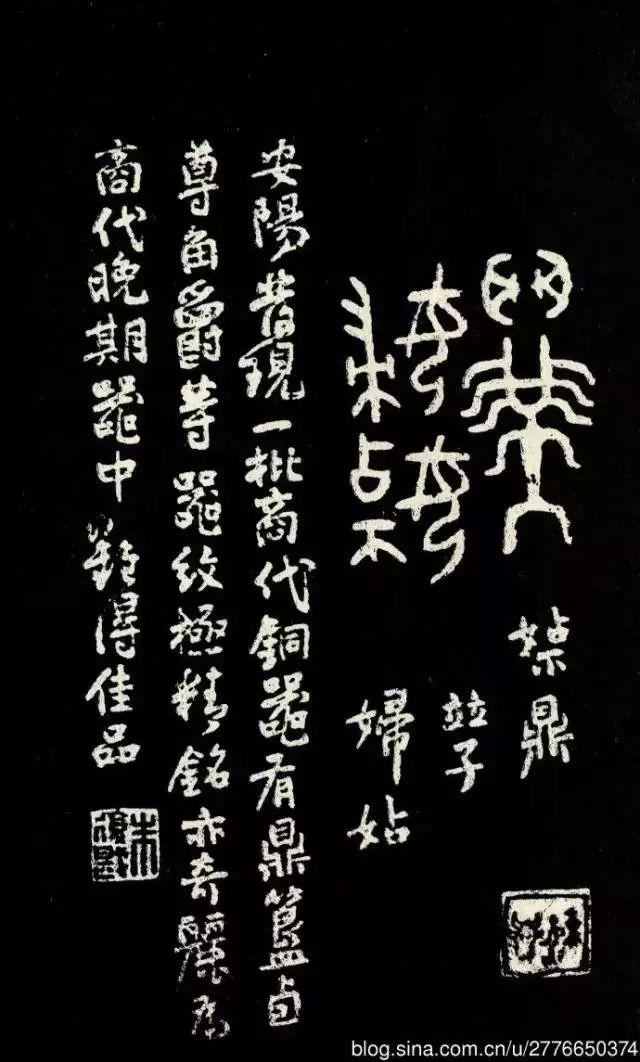 鼎
竝子
婦姑
安陽昔現一批商代銅器有鼎簋卣
尊角爵等器紋極精銘亦奇麗為
商代晚期器中難得佳品
blog.sina.com.cn/u/2776650374